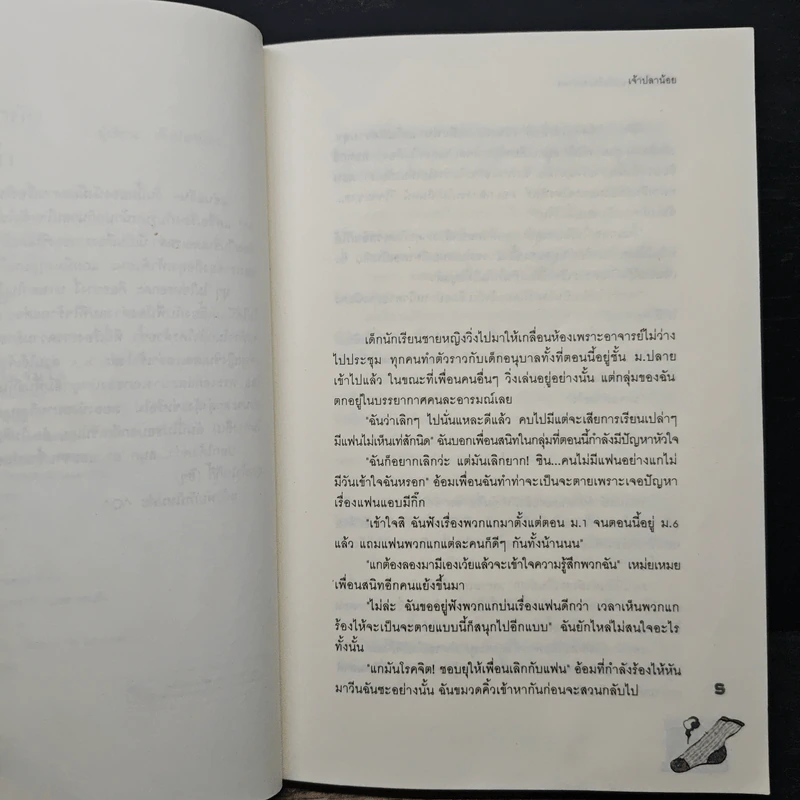 เจ้าปลาน้อย
เด็กนักเรียนชายหญิงวิ่งไปมาให้เกลื่อนห้องเพราะอาจารย์ไม่ว่าง
ไปประชุม ทุกคนทำตัวราวกับเด็กอนุบาลทั้งที่ตอนนี้อยู่ชั้น ม.ปลาย
เข้าไปแล้ว ในขณะที่เพื่อนคนอื่นๆ วิ่งเล่นอยู่อย่างนั้น แต่กลุ่มของฉัน
ตกอยู่ในบรรยากาศคนละอารมณ์เลย
"ฉันว่าเลิกๆ ไปนั่นแหละดีแล้ว คบไปมีแต่จะเสียการเรียนเปล่าๆ
มีแฟนไม่เห็นเท่สักนิด" ฉันบอกเพื่อนสนิทในกลุ่มที่ตอนนี้กำลังมีปัญหาหัวใจ
"ฉันก็อยากเลิกว่ะ แต่มันเลิกยาก! ชิน...คนไม่มีแฟนอย่างแกไม่
มีวันเข้าใจฉันหรอก" อ้อมเพื่อนฉันทำท่าจะเป็นจะตายเพราะเจอปัญหา
เรื่องแฟนแอบมีกิ๊ก
"เข้าใจสิ ฉันฟังเรื่องพวกแกมาตั้งแต่ตอน ม.1 จนตอนนี้อยู่ ม.6
แล้ว แถมแฟนพวกแกแต่ละคนก็ดีๆ กันทั้งน้านนน"
"แกต้องลองมามีเองเว้ยแล้วจะเข้าใจความรู้สึกพวกฉัน" เหม่ยเหมย
เพื่อนสนิทอีกคนแย้งขึ้นมา
"ไม่ล่ะ ฉันขออยู่ฟังพวกแกบ่นเรื่องแฟนดีกว่า เวลาเห็นพวกแก
ร้องไห้จะเป็นจะตายแบบนี้ก็สนุกไปอีกแบบ" ฉันยักไหล่ไม่สนใจอะไร
ทั้งนั้น
"แกมันโรคจิต! ชอบยุให้เพื่อนเลิกกับแฟน" อ้อมที่กำลังร้องไห้หัน
มาวีนฉันซะอย่างนั้น ฉันขมวดคิ้วเข้าหากันก่อนจะสวนกลับไป